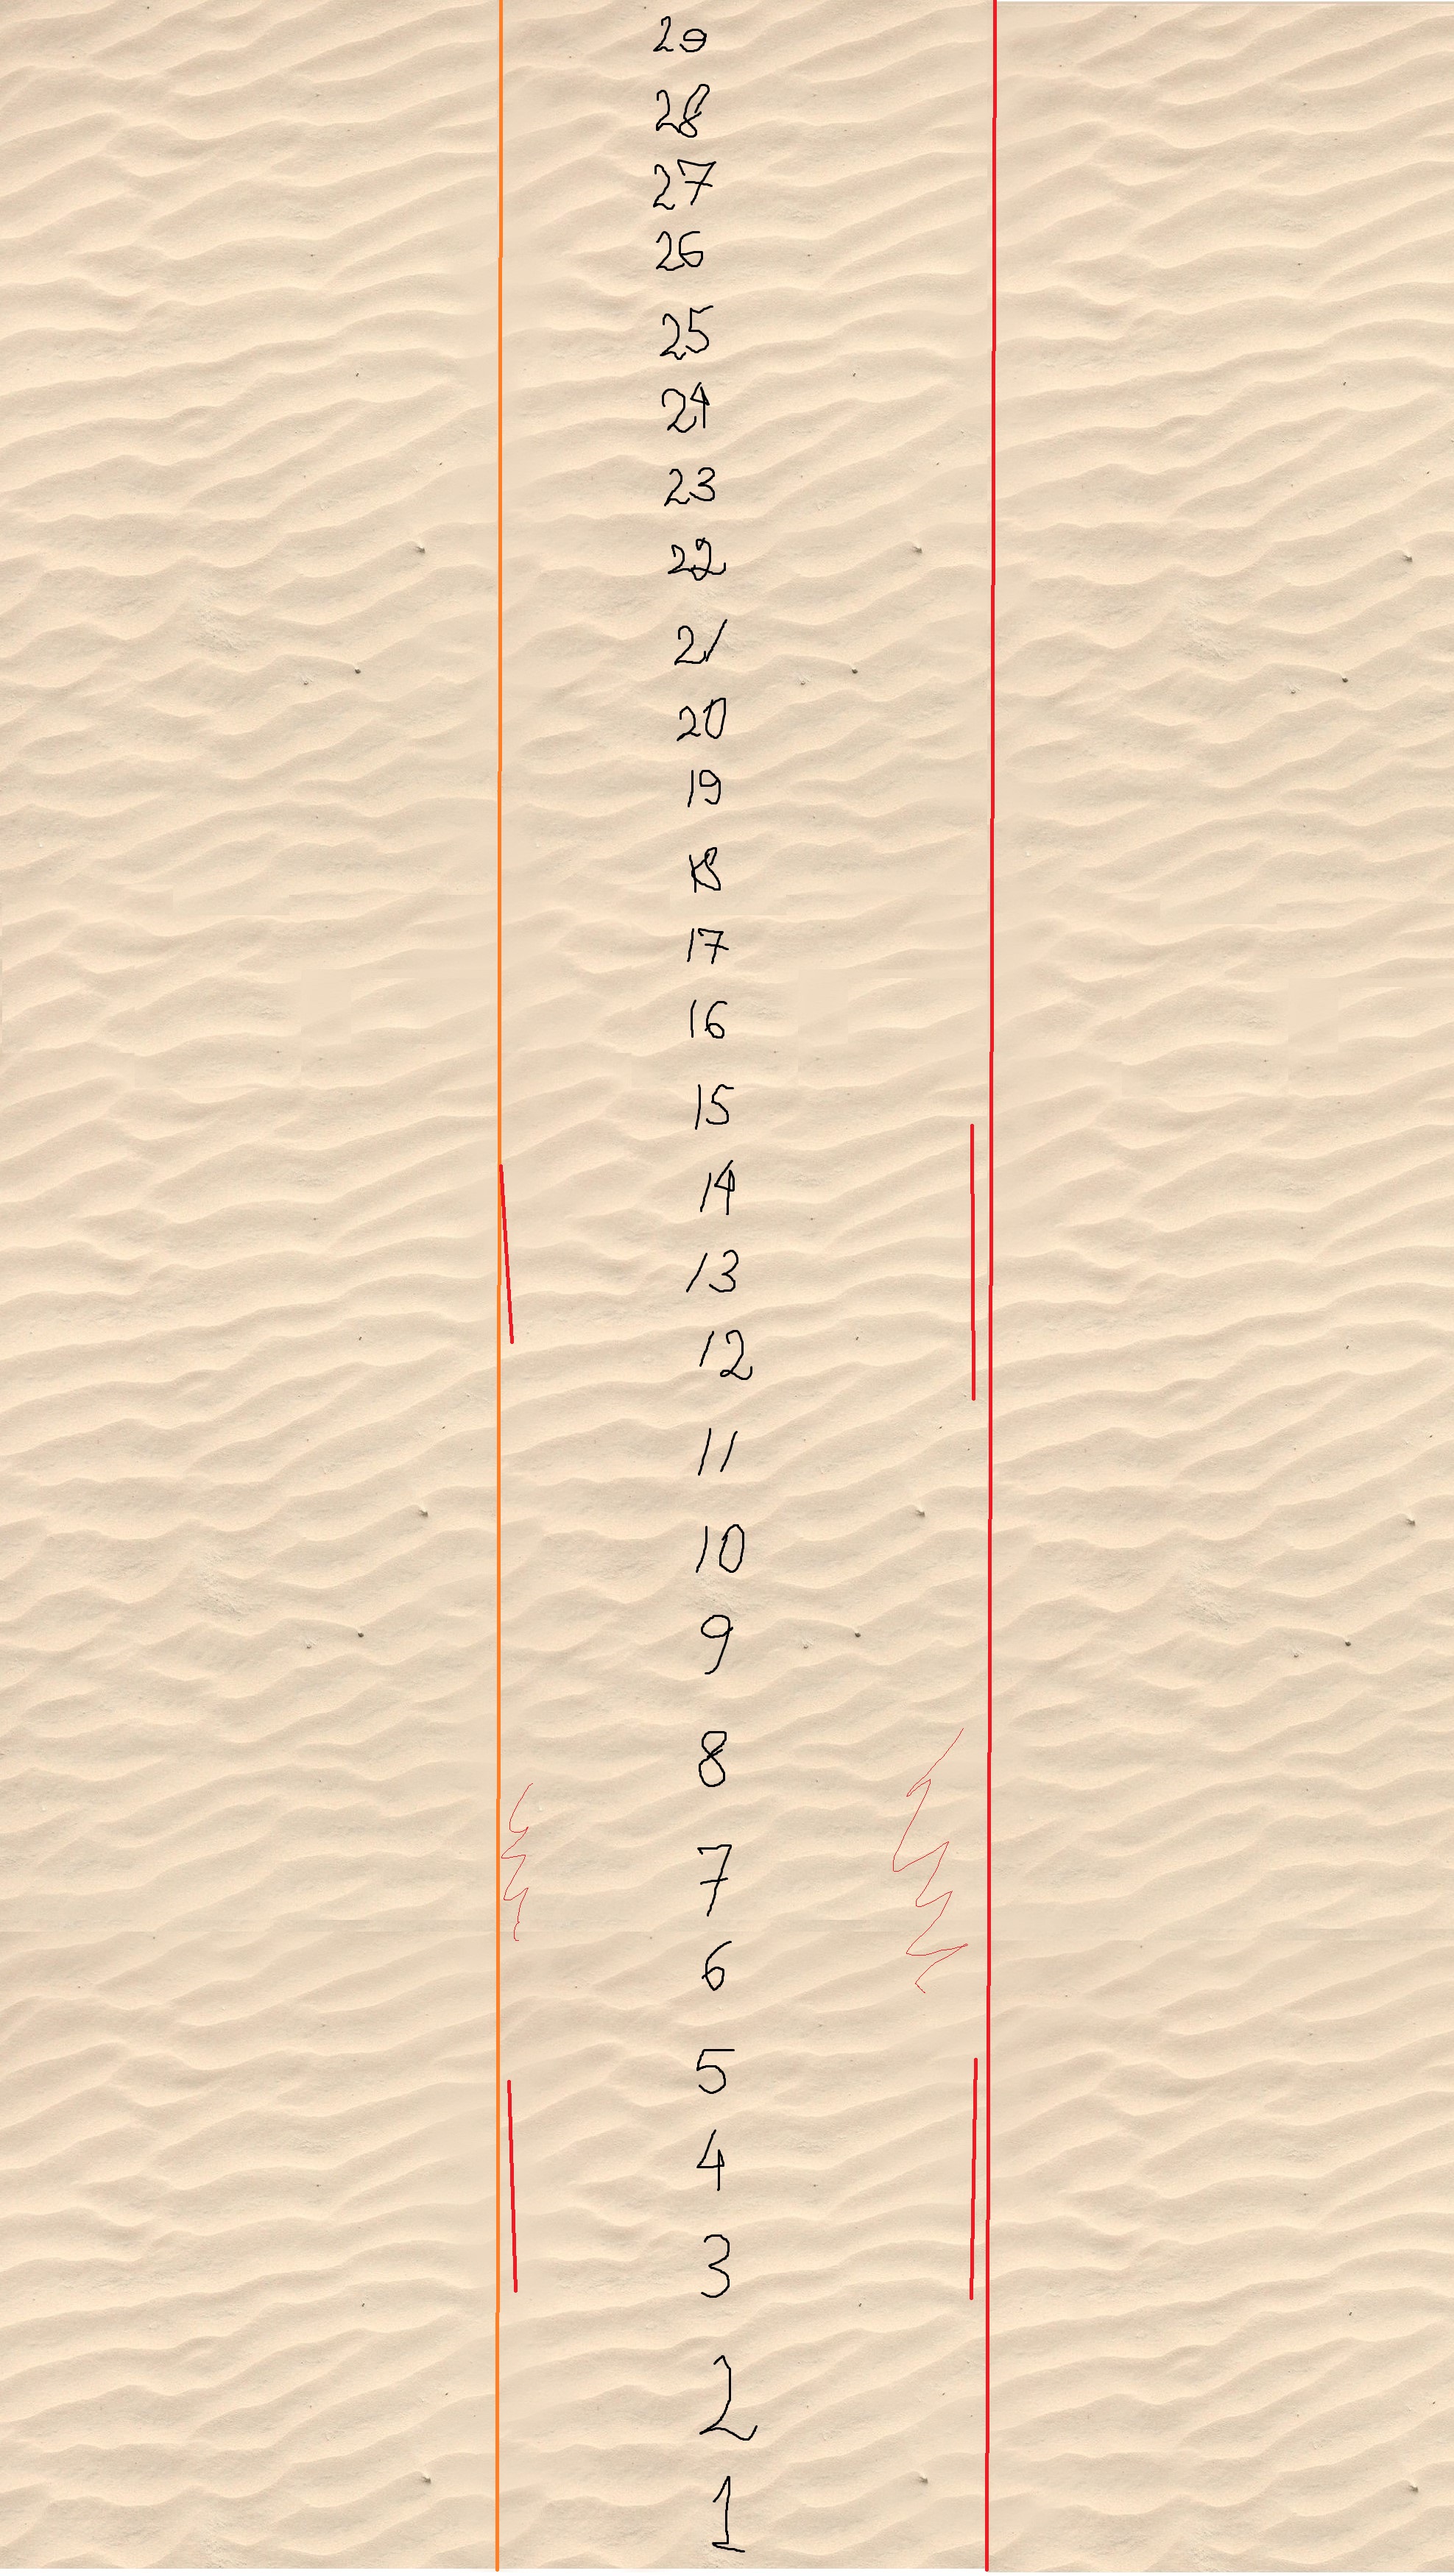 29
28
27
26
25
24
23
22
21
20
19
18
17
16
15
14
13
12
11
10
9
8
7
6
5
4
3
2
1